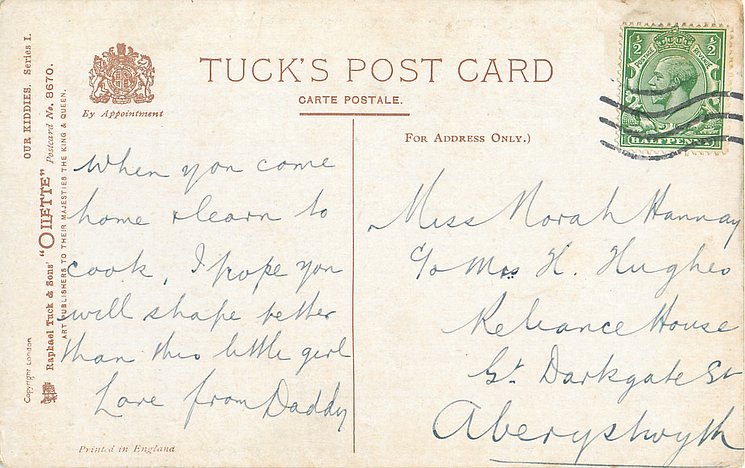 OUR KIDDIES. Series I.
Raphael Tuck & Sons' "OILETTE" Postcard No. 8670.
ART PUBLISHERS TO THEIR MAJESTIES THE KING & QUEEN.
Copyright London
By Appointment
TUCK'S POST CARD
CARTE POSTALE.
FOR ADDRESS ONLY.)
½ ½
POSTAGE REVENUE
HALFPENNY
When you come
home & learn to
cook, I hope you
will shape better
than this little girl
Love from Daddy
Miss Norah Hannay
c/o Mrs H. Hughes
Reliance House
Gt. Darkgate St
Aberystwyth
Printed in England